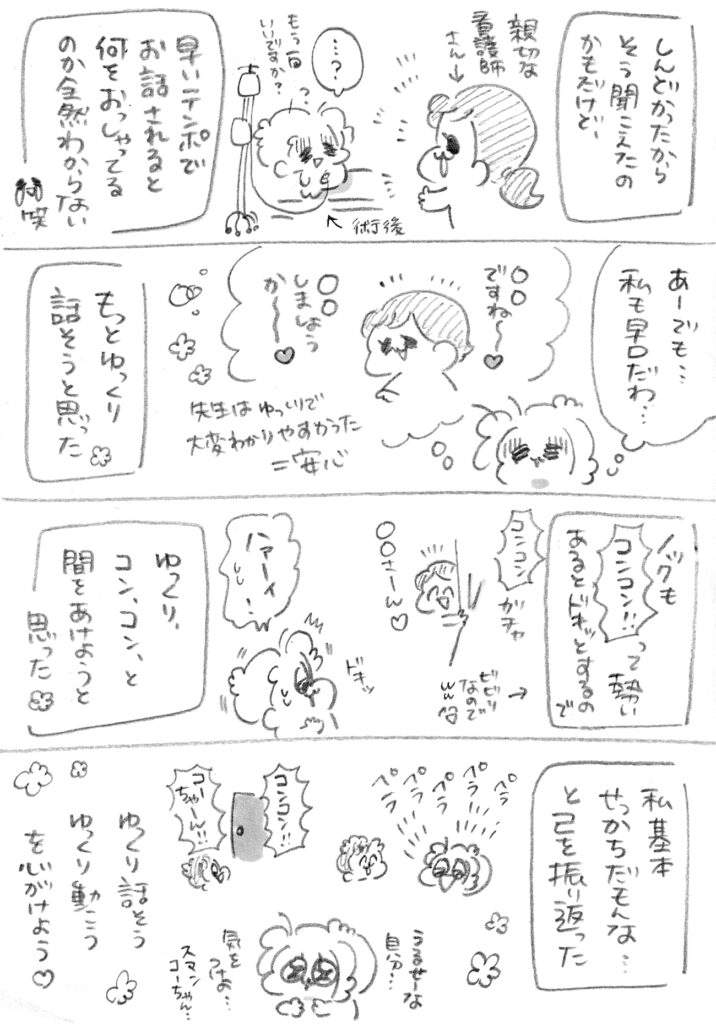 しんどかったから
そう聞こえたの
かもだけど、
親切な
看護師
さん→
…?
もう一回
いいですか?
術後
早いテンポで
お話されると
何をおっしゃってる
のか全然わからない
笑
あーでも…
私も早口だわ…
〇〇
ですね〜〜♥
〇〇
しましょう
か〜〜♥
先生はゆっくりで
大変わかりやすかった
=安心
もっとゆっくり
話そうと思った
ノックも
コンコン!!って勢い
あるとドキッとするので
ビビリ
なので
ww
コンコン
ガチャ
〇〇さーん♡
ドキッ
ハァーイ
ゆっくり、
コン、コン、と
間をあけようと
思った
私基本
せっかちだもんな…
と己を振り返った
ペラ
ペラ
ペラ
ペラ
ペラ
コンコン!!
コー
ちゃーん!!
うるせーな
自分…
気を
つけよ…
スマン
コーちゃん…
ゆっくり話そう
ゆっくり動こう
を心がけよう♡